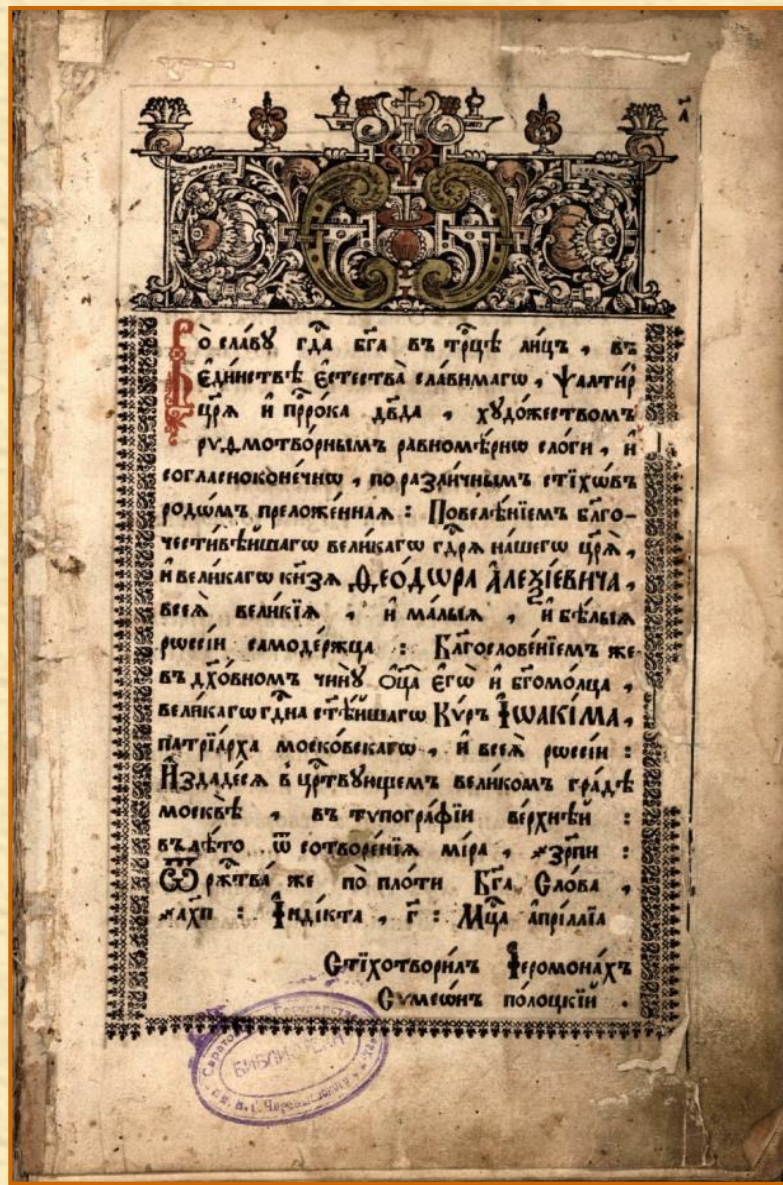 ҃а
Во сла́вꙋ гдⷭ҇а бг҃а въ трⷪ҇цѣ лицъ , въ
є҆ди́нствѣ є҆стества̀ сла́вимагѡ , ѱалти́р
цр҃ѧ̀ и҆ прⷪ҇ро́ка дв҃да , хꙋдо́жествомъ
рѵѳмотво́рнымъ равномѣ́рнѡ сло́ги , и҆
согласноконе́чнѡ , по разли́чнымъ стїхѡ́въ
родѡ́мъ преложе́ннаѧ : Повелѣ́нїемъ бл҃го-
чести́вѣйшагѡ вели́кагѡ гдⷭ҇рѧ на́шегѡ цр҃ѧ̀ ,
и҆ вели́кагѡ кн҃зѧ Ѳео́дѡра А҆леѯі́евича ,
всеѧ̀ вели́кїѧ , и҆ ма́лыѧ , и҆ бѣ́лыѧ
рѡссі́и самоде́ржца : Бл҃гослове́нїемъ же
въ дх҃о́вномъ чи́нꙋ ѻ҆ц҃а̀ є҆гѡ̀ и҆ бг҃омо́лца ,
вели́кагѡ гдⷭ҇на ст҃ѣ́йшагѡ Кѵ́ръ І҆Ѡаки́ма ,
патрїа́рха моско́вскагѡ , и҆ всеѧ̀ рѡссі́и :
И҆здаде́сѧ в црⷭ҇твꙋющемъ вели́комъ гра́дѣ
москвѣ̀ , въ тѵпогра́фїи ве́рхнѣй :
въ лѣ́то ѿ сотворе́нїѧ мі́ра , ҂зрпи :
Ѿ ржⷭ҇тва́ же по пло́ти Бг҃а Сло́ва ,
҂ахп : І҆нді́кта , г҃ : Мцⷭ҇а а҆прі́ллїа
Стїхотвори́лъ І҆еромона́хъ
Сѵмеѡ́нъ по́лоцкїй .
БИБЛИОТЕКА